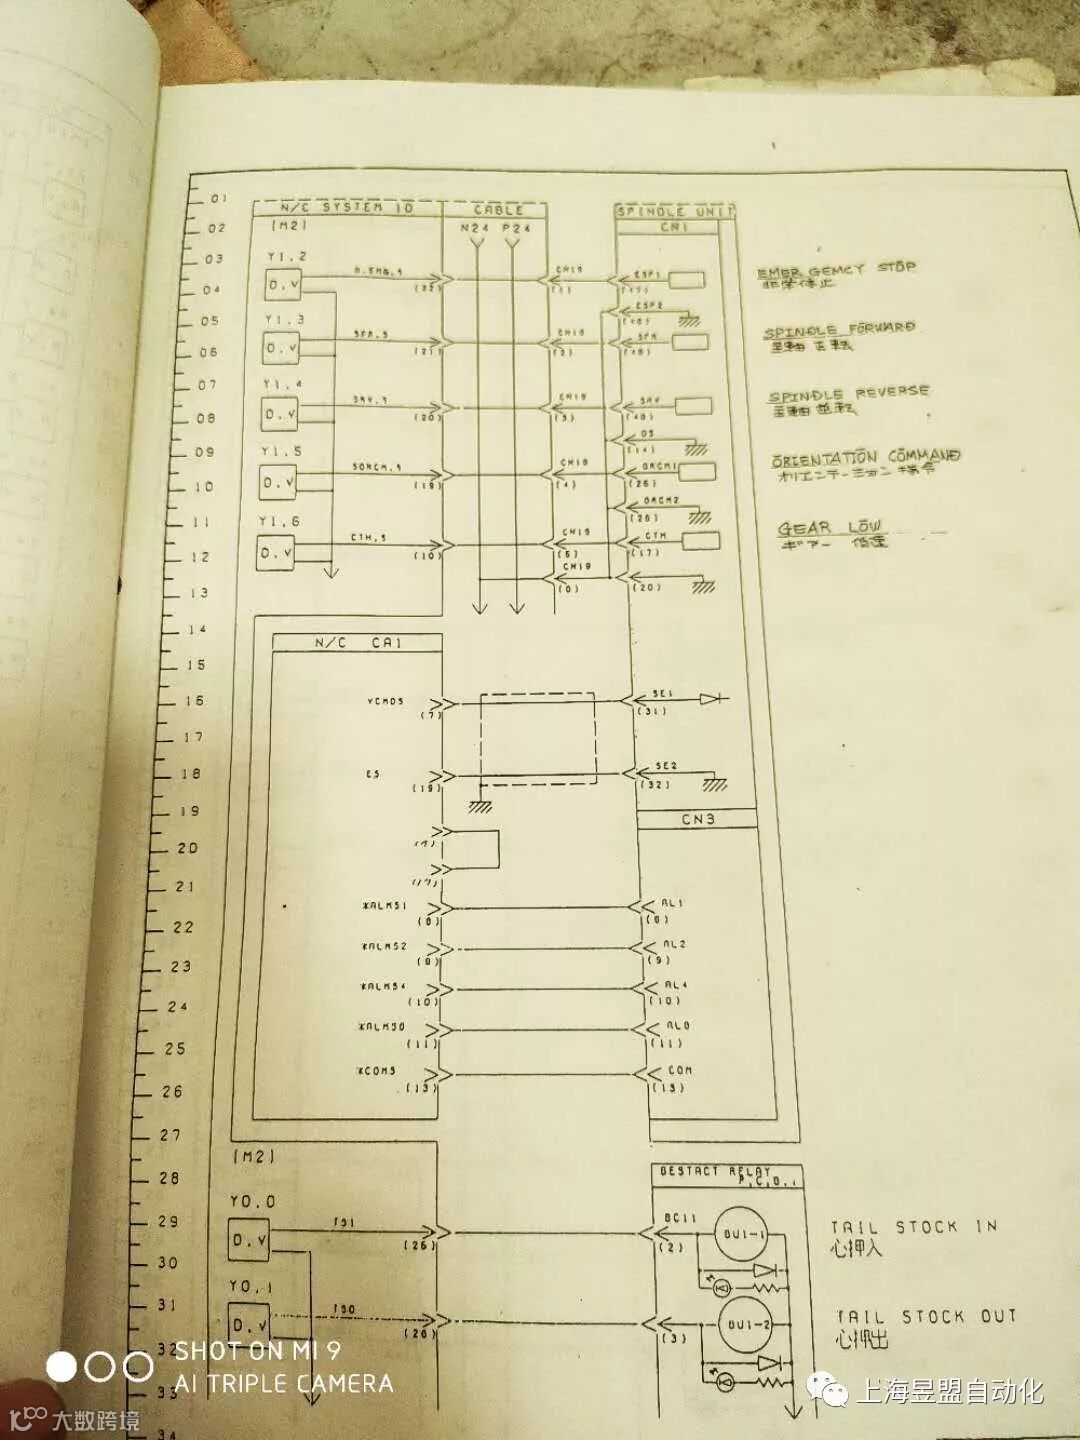 01
N/C SYSTEM IO
CABLE
SPINDLE UNIT
02
(M2)
N24 P24
CN1
03
Y1.2
CM19
ESP1
EMERGEMCY STOP
非常停止
04
D.V
(22)
(1)
(47)
ESP2
05
Y1.3
SFR.S
CM19
SPINDLE FORWARD
主軸 正転
06
D.V
(21)
(2)
07
Y1.4
SRV.S
CM19
SRV
SPINDLE REVERSE
主軸 逆転
08
D.V
(20)
(3)
OS
(14)
09
Y1.5
SORCM.S
CM19
ORCM1
ORIENTATION COMMAND
オリエンテーション 指令
10
D.V
(19)
(4)
(25)
ORCM2
(26)
11
Y1.6
CTM.S
CM19
CTM
GEAR LOW
ギアー 低速
12
D.V
(5)
(17)
CM19
13
(20)
14
N/C CA1
15
16
VCMDS
SE1
(7)
(31)
17
18
ES
SE2
(19)
(32)
19
CN3
20
21
*ALMS1
AL1
22
*ALMS2
AL2
(9)
23
*ALMS4
AL4
(10)
(10)
24
*ALMS8
AL8
25
(11)
(11)
*COMS
COM
26
(13)
(13)
27
(M2)
BESTACT RELAY
P.C.B.
28
Y0.0
29
TSI
BC11
TAIL STOCK IN
心押入
D.V
(2)
BU1-1
30
Y0.1
31
TSO
TAIL STOCK OUT
心押出
D.V
(3)
BU1-2
32
33
34
SHOT ON MI 9
AI TRIPLE CAMERA
上海昱盟自动化
大数跨境